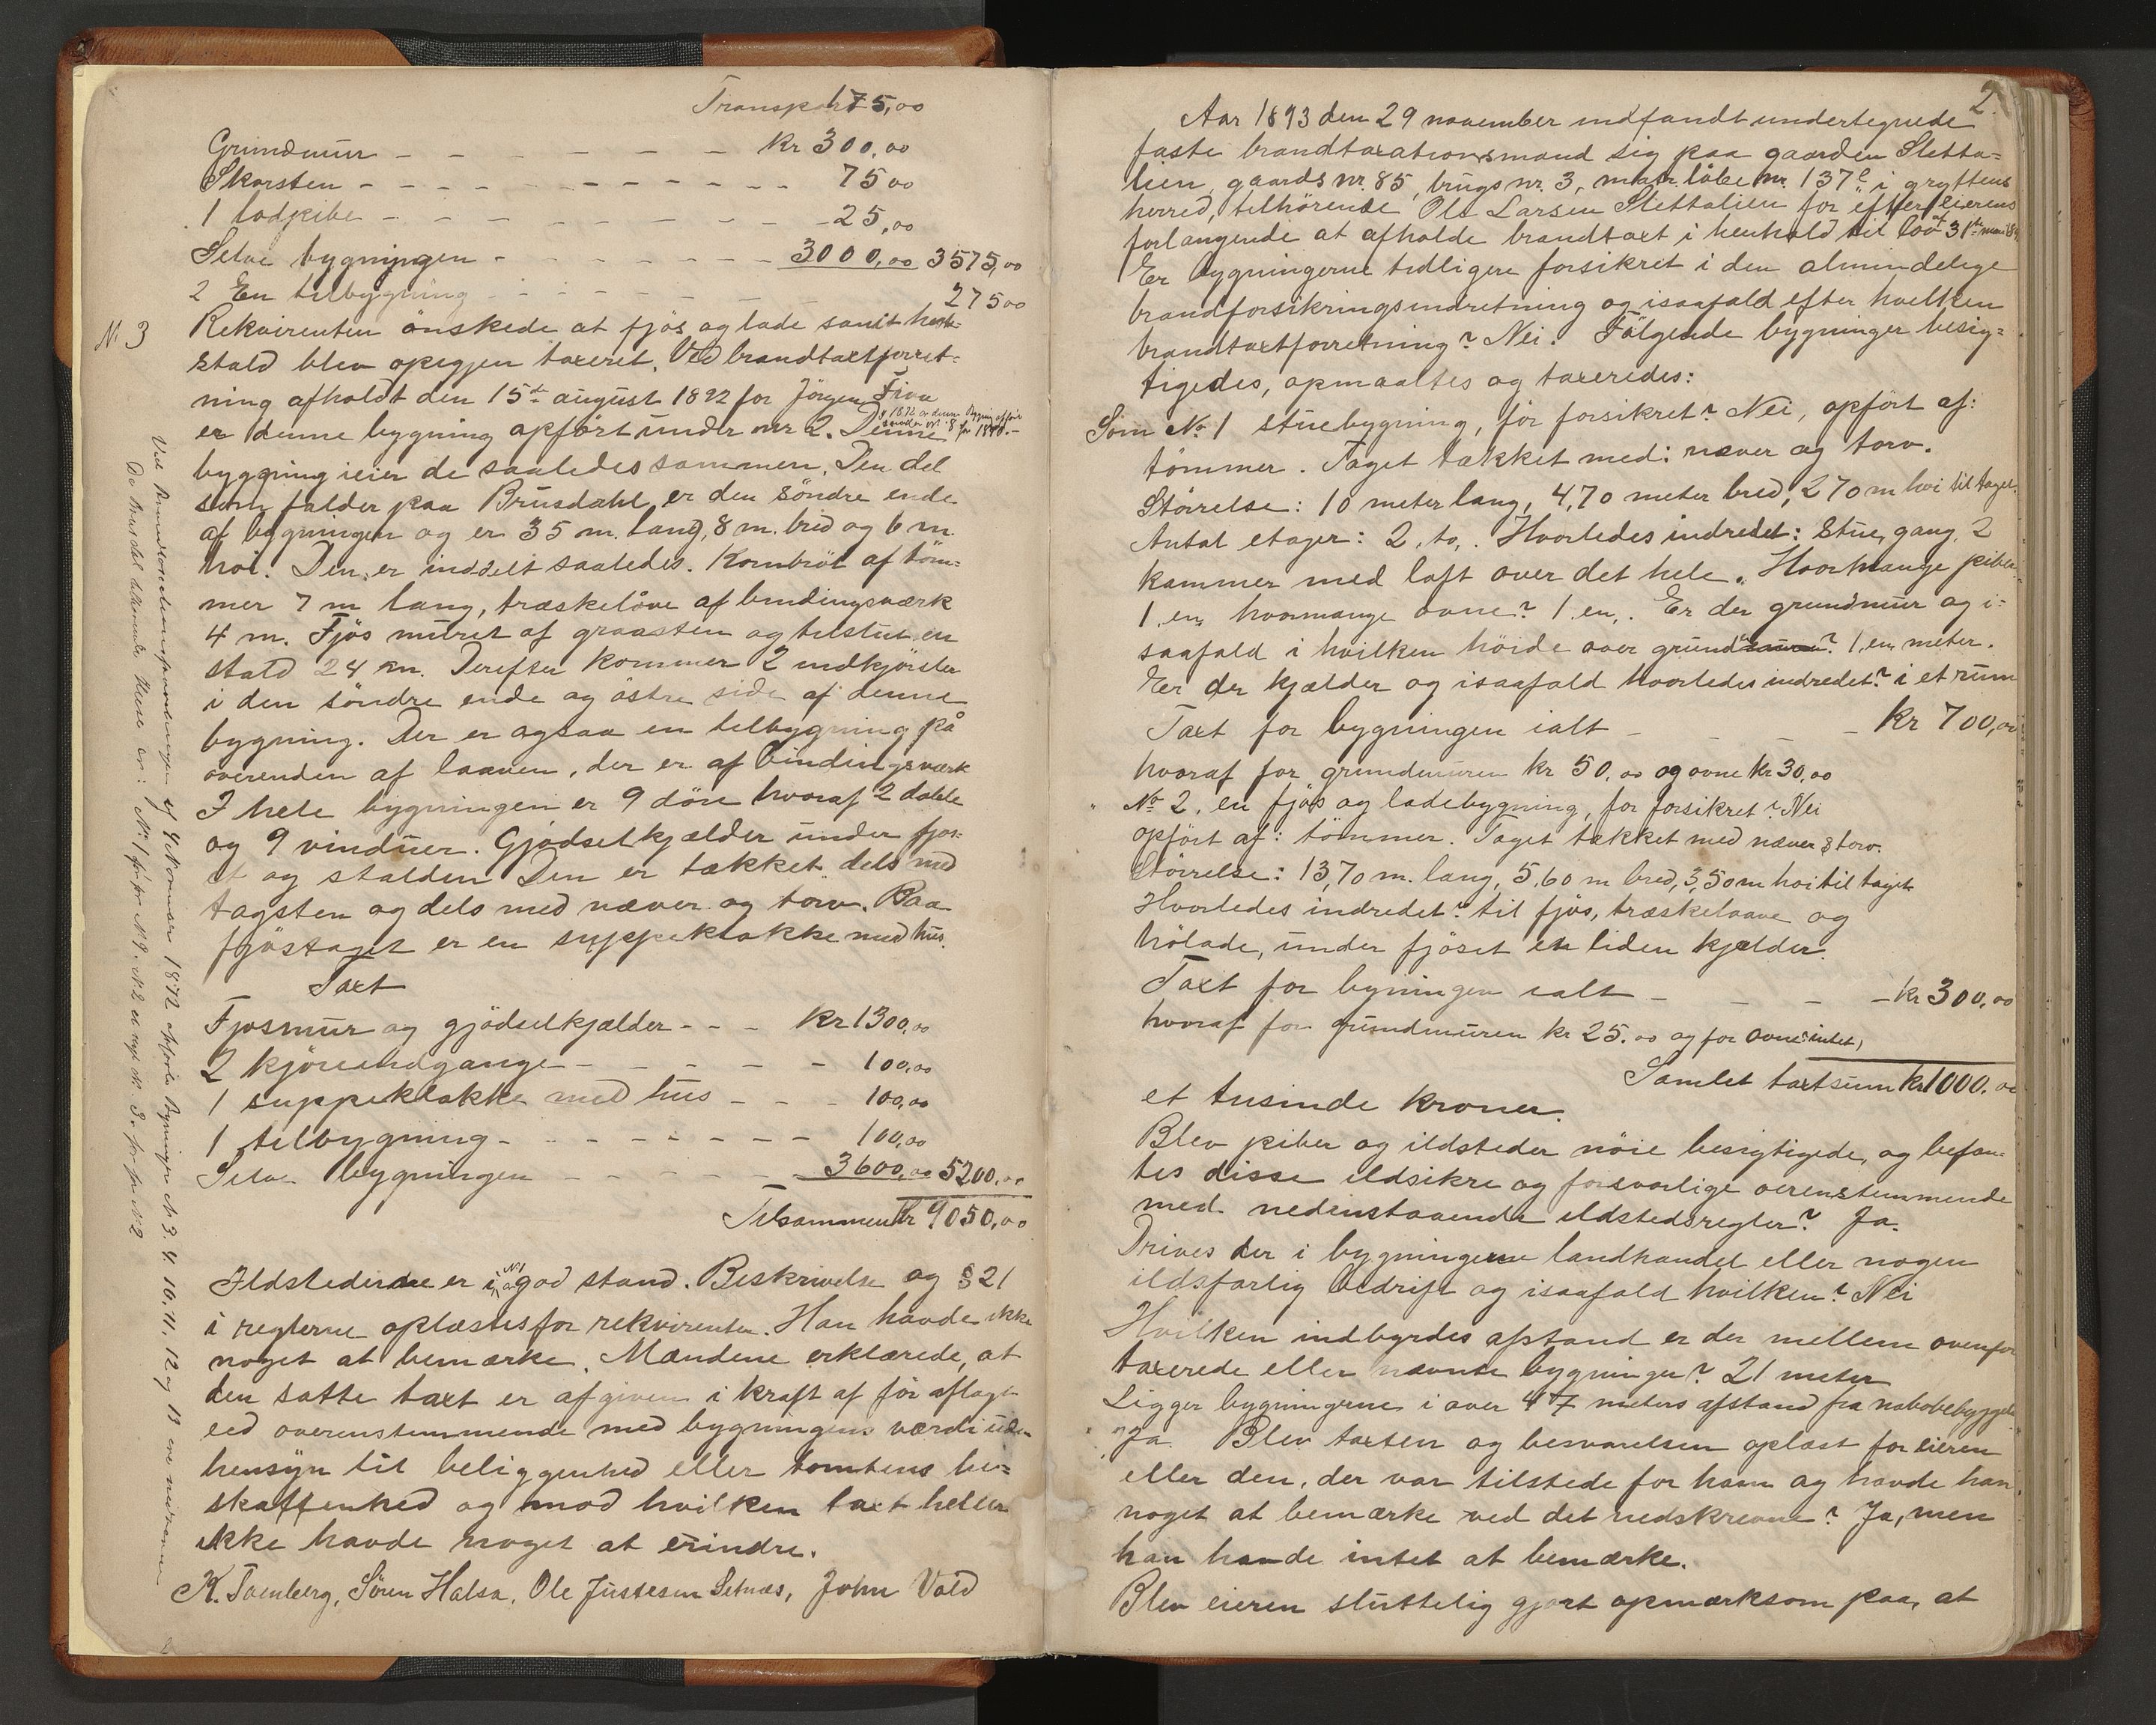 Transport 175,00
Grundmur - - - - - - - kr 300,00
Skorsten - - - - - - - - 75 00
1 lodpibe - - - - - - - - 25,00
Selve bygningen - - - - - - 3000,00 3575,00
2 En tilbygning - - - - - - 275 00
No 3 Rekvirenten önskede at fjös og lade samt heste-
stald blev opigjen taxeret. Ved brandtaxtforret-
ning afholdt den 15de august 1892 for Jörgen Fiva
er denne bygning opfört under nr 2. Denne
bygging ieier de saaledes sammen. Den del
som falder paa Brusdahl er den söndre ende
af bygningen og er 35 m. lang, 8 m. bred og 6 m.
höi. Den er inddelt saaledes. Kornbröt af töm-
mer 7 m lang, træskelåve af bindingsværk
4 m. Fjös muret af graasten og tilstut en
stald 24 m. Derefter kommer 2 indkjörsler
i den söndre ende og östre side af denne
bygning. Der er ogsaa en tilbygning på
overenden af laaven, der er af bindingsværk
I hele bygningen er 9 döre hvoraf 2 doble
og 9 vinduer. Gjödselkjælder under fjös-
et og stalden Den er tækket dels med
tagsten og dels med næver og torv. Paa
fjöstaget er en suppeklokke med hus.
Taxt
Fjosmur og gjödselkjælder - - - kr 1300,00
2 kjöreindgange - - - - - 100,00
1 suppeklokke med hus - - - 100,00
1 tilbygning - - - - - - - 100,00
Selve bygningen - - - - - 3600,00 5200,00
Tilsammen kr 9050,00
Ildstederne er i god stand. Beskrivelse og § 21
i reglerne oplæstes for rekvirenten. Han havde ikke
noget at bemærke. Mændene erklærede, at
den satte taxt er afgiven i kraft af för aflagt
eed overenstemmende med bygningens værdi uden
hensyn til beliggenhed eller tomtens be-
skaffenhed og mod hvilken taxt heller
ikke havde noget at erindre.
K. Tvenberg, Sören Halsa, Ole Justesen Setnæs, John Vold
2.
Aar 1893 den 29 november indfandt undertegnede
faste brandtaxationsmand sig paa gaarden Sletta-
lien, gaards nr. 85, brugs nr. 3, matr. löbe nr. 137 i gryttens
herred, tilhörende Ole Larsen Slettalien for efter eierens
forlangende at afholde brandtaxt i henhold til lov af 31te
Er bygningerne tidligere forsikret i den almindelige
brandforsikringsindretning og isaafald efter hvilken
brandtaxtforretning? Nei. Fölgende bygninger besig-
tigedes, opmaaltes og taxeredes:
Som No 1 stuebygning, för forsikret? Nei, opfört af:
tömmer. Taget tækket med: næver og torv.
Störrelse: 10 meter lang, 4,70 meter bred, 2,70 m höi til taget.
Antal etager: 2, to,. Hvorledes indredet: Stue, gang, 2
kammer med loft over det hele. Hvormange piber
1 en, hvormange ovne? 1 en,. Er der grundmur og i-
saafald i hvilken höide over grund? 1, en, meter.
Er der kjælder og isaafald hvorledes indredet? i et rum
Taxt for bygningen ialt - - - - kr 700,00
hvoraf for grundmuren kr 50,00 og ovne kr 30,00
No 2, en fjös og ladebygning, för forsikret? Nei
opfört af: tömmer. Taget tækket med næver & torv.
Störrelse: 13,70 m. lang, 5,60 m bred, 3,50 m höi til taget
Hvorledes indredet? til fjös, træskelaave og
hölade, under fjöset en liden kjælder.
Taxt for bygningen ialt - - - - kr 300,00
hvoraf for grundmuren kr 25.00 og for ovne intet,
Samlet taxtsum kr 1000.00
et tusinde kroner.
Blev piber og ildsteder nöie besigtigede, og befan-
tes disse ildsikre og forsvarlige overenstemmende
med nedenstaaende ildstedsregler? Ja.
Drives der i bygningerne landhandel eller nogen
ildsfarlig bedrift og isaafald hvilken? Nei
Hvilken indbyrdes afstand er der mellem ovenfor
taxerede eller nævnte bygninger? 21 meter
Ligger bygningerne i over 47 meters afstand fra nabobebyggelse
Ja. Blev taxten og besvarelsen oplæst for eieren
eller den, der var tilstede for ham og havde han
noget at bemærke ved det nedskrevne? Ja, men
han havde intet at bemærke.
Blev eieren sluttelig gjort opmærksom paa, at